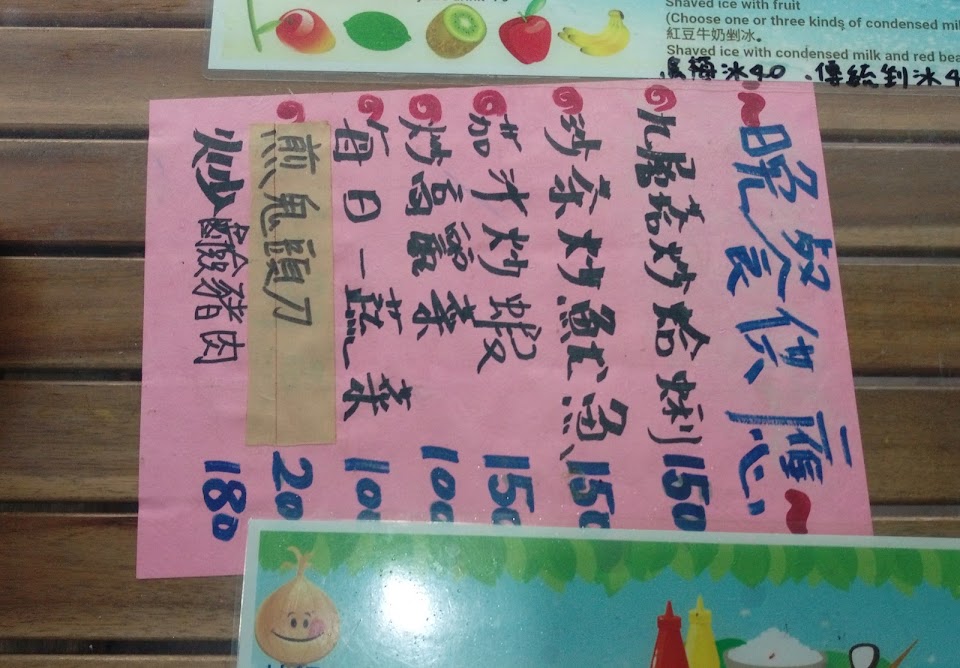 Shaved ice with fruit
(Choose one or three kinds of condensed mil
紅豆牛奶剉冰。
Shaved ice with condensed milk and red bea
烏梅冰40、傳統剉冰4
晚餐供應
九層塔炒蛤蜊 150
沙茶炒魷魚 150
茄汁炒蝦 150
炒高麗菜 100
每日一蔬菜 100
煎鬼頭刀 20
炒鹹豬肉 180